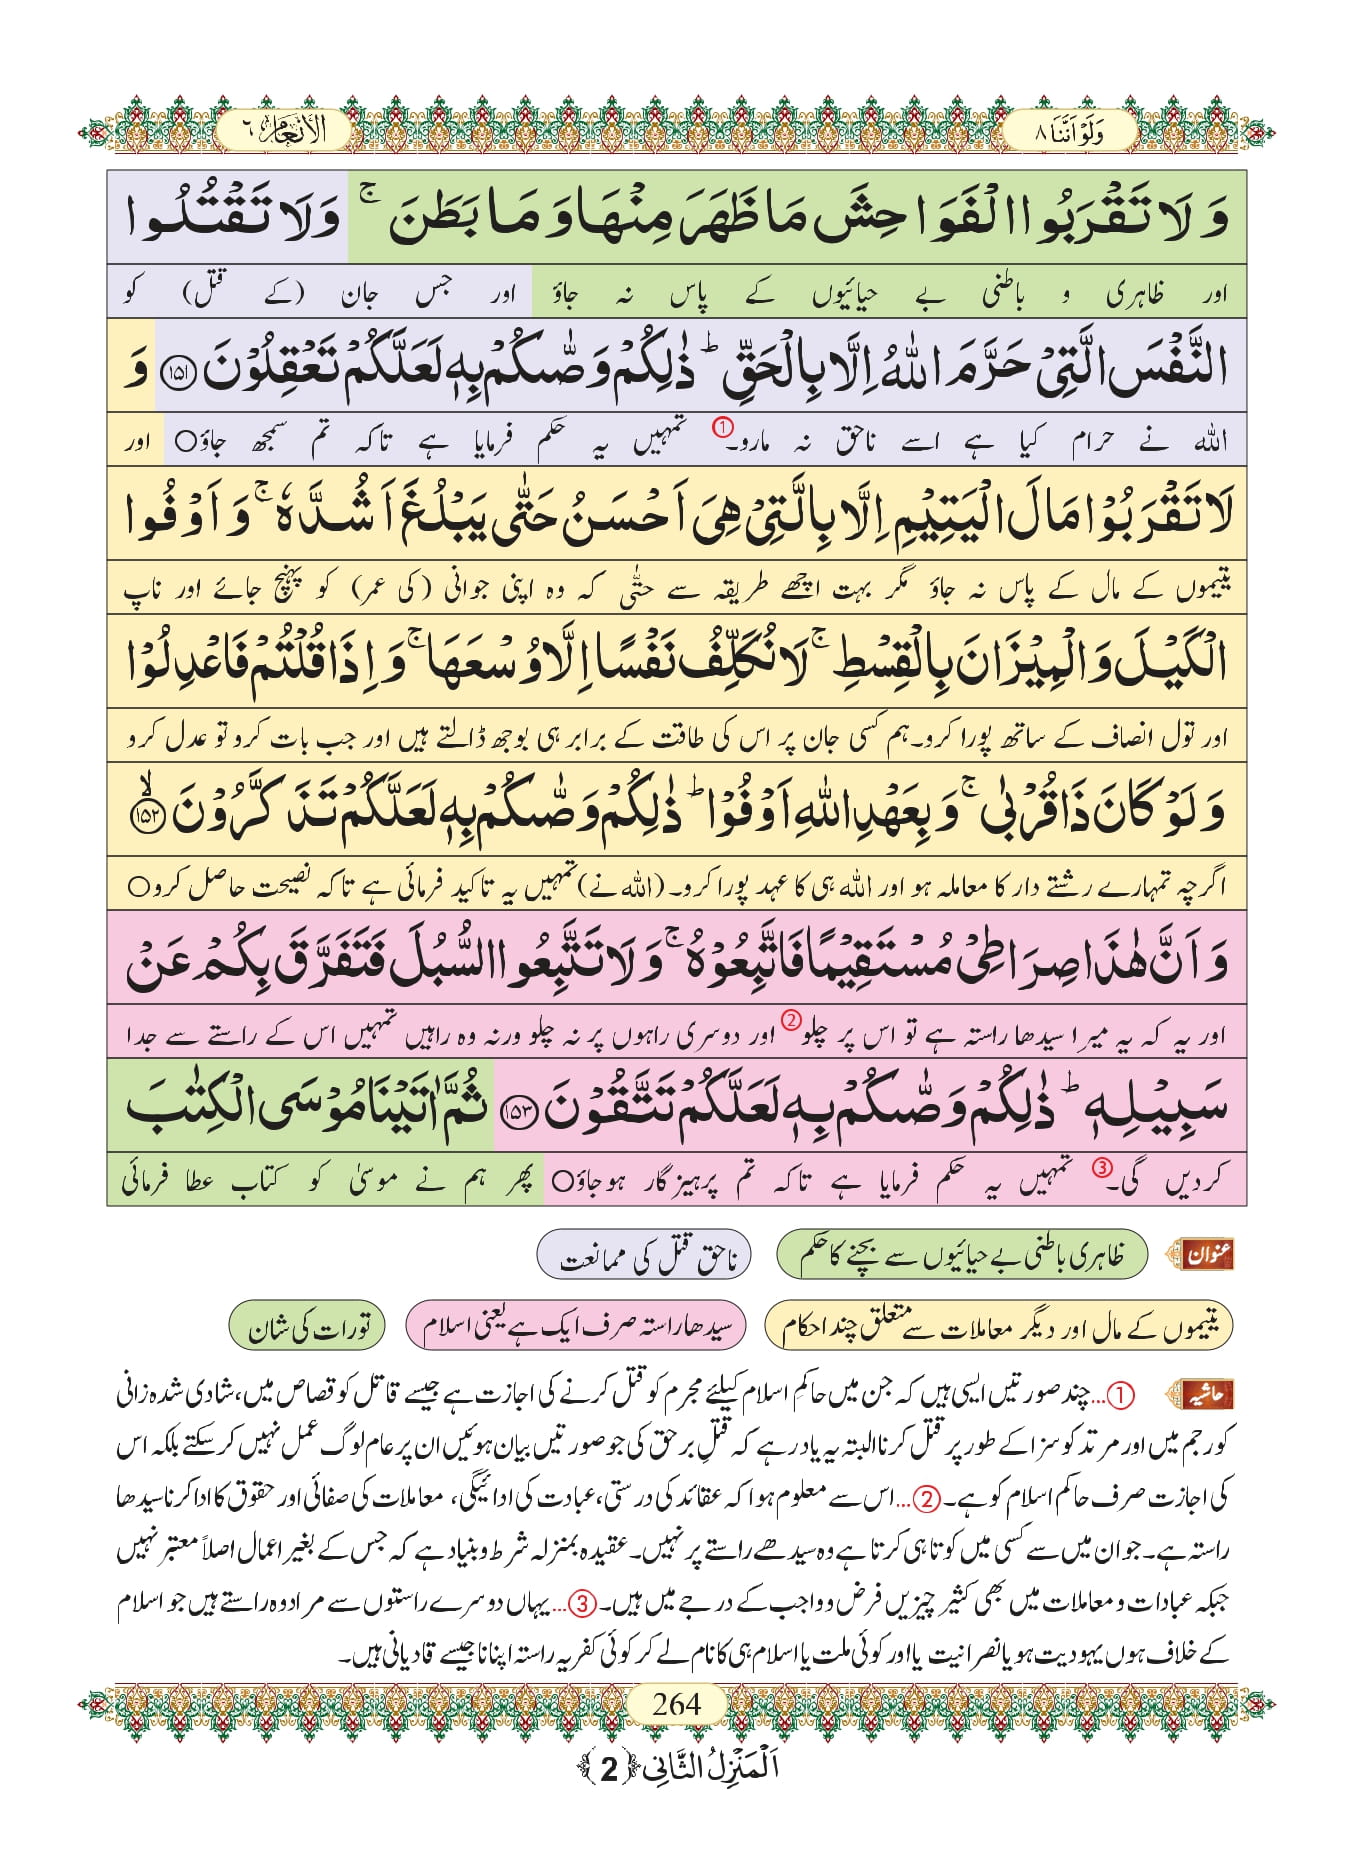 وَلَوْ اَنَّنَا ٨
الاَنْعَام ٦
وَلَا تَقْرَبُوا الْفَوَاحِشَ مَا ظَهَرَ مِنْهَا وَمَا بَطَنَ ۚ وَلَا تَقْتُلُوا
اور ظاہری و باطنی بے حیائیوں کے پاس نہ جاؤ اور جس جان (کے قتل) کو
النَّفْسَ الَّتِیْ حَرَّمَ اللّٰهُ اِلَّا بِالْحَقِّ ؕ ذٰلِكُمْ وَصّٰىكُمْ بِهٖ لَعَلَّكُمْ تَعْقِلُوْنَ ﴿۱۵۱﴾ وَ
اللہ نے حرام کیا ہے اسے ناحق نہ مارو۔① تمہیں یہ حکم فرمایا ہے تاکہ تم سمجھ جاؤ○ اور
لَا تَقْرَبُوْا مَالَ الْیَتِیْمِ اِلَّا بِالَّتِیْ هِیَ اَحْسَنُ حَتّٰى یَبْلُغَ اَشُدَّهٗ ۚ وَ اَوْفُوا
یتیموں کے مال کے پاس نہ جاؤ مگر بہت اچھے طریقہ سے حتّٰی کہ وہ اپنی جوانی (کی عمر) کو پہنچ جائے اور ناپ
الْكَیْلَ وَ الْمِیْزَانَ بِالْقِسْطِ ۚ لَا نُكَلِّفُ نَفْسًا اِلَّا وُسْعَهَا ۚ وَ اِذَا قُلْتُمْ فَاعْدِلُوْا
اور تول انصاف کے ساتھ پورا کرو۔ہم کسی جان پر اس کی طاقت کے برابر ہی بوجھ ڈالتے ہیں اور جب بات کرو تو عدل کرو
وَ لَوْ كَانَ ذَا قُرْبٰى ۚ وَ بِعَهْدِ اللّٰهِ اَوْفُوْا ؕ ذٰلِكُمْ وَصّٰىكُمْ بِهٖ لَعَلَّكُمْ تَذَكَّرُوْنَ ۙ﴿۱۵۲﴾
اگرچہ تمہارے رشتے دار کا معاملہ ہو اور اللہ ہی کا عہد پورا کرو۔ (اللہ نے) تمہیں یہ تاکید فرمائی ہے تاکہ نصیحت حاصل کرو○
وَ اَنَّ هٰذَا صِرَاطِیْ مُسْتَقِیْمًا فَاتَّبِعُوْهُ ۚ وَ لَا تَتَّبِعُوا السُّبُلَ فَتَفَرَّقَ بِكُمْ عَنْ
اور یہ کہ یہ میرا سیدھا راستہ ہے تو اس پر چلو② اور دوسری راہوں پر نہ چلو ورنہ وہ راہیں تمہیں اس کے راستے سے جدا
سَبِیْلِهٖ ؕ ذٰلِكُمْ وَصّٰىكُمْ بِهٖ لَعَلَّكُمْ تَتَّقُوْنَ ﴿۱۵۳﴾ ثُمَّ اٰتَیْنَا مُوْسَى الْكِتٰبَ
کردیں گی۔③ تمہیں یہ حکم فرمایا ہے تاکہ تم پرہیز گار ہو جاؤ○ پھر ہم نے موسیٰ کو کتاب عطا فرمائی
عنوان ظاہری باطنی بے حیائیوں سے بچنے کا حکم ناحق قتل کی ممانعت
یتیموں کے مال اور دیگر معاملات سے متعلق چند احکام سیدھا راستہ صرف ایک ہے یعنی اسلام تورات کی شان
حاشیہ ①...چند صورتیں ایسی ہیں کہ جن میں حاکمِ اسلام کیلئے مجرم کو قتل کرنے کی اجازت ہے جیسے قاتل کو قصاص میں، شادی شدہ زانی
کو رجم میں اور مرتد کو سزا کے طور پر قتل کرنا البتہ یہ یاد رہے کہ قتلِ برحق کی جو صورتیں بیان ہوئیں ان پر عام لوگ عمل نہیں کر سکتے بلکہ اس
کی اجازت صرف حاکم اسلام کو ہے۔ ②...اس سے معلوم ہوا کہ عقائد کی درستی، عبادت کی ادائیگی، معاملات کی صفائی اور حقوق کا ادا کرنا سیدھا
راستہ ہے۔ جو ان میں سے کسی میں کوتاہی کرتا ہے وہ سیدھے راستے پر نہیں۔ عقیدہ بمنزلہ شرط و بنیاد ہے کہ جس کے بغیر اعمال اصلاً معتبر نہیں
جبکہ عبادات و معاملات میں بھی کثیر چیزیں فرض و واجب کے درجے میں ہیں۔ ③...یہاں دوسرے راستوں سے مراد وہ راستے ہیں جو اسلام
کے خلاف ہوں یہودیت ہو یا نصرانیت یا اور کوئی ملت یا اسلام ہی کا نام لے کر کوئی کفریہ راستہ اپنانا جیسے قادیانی ہیں۔
264
اَلْمَنْزِلُ الثَّانِی ﴿2﴾